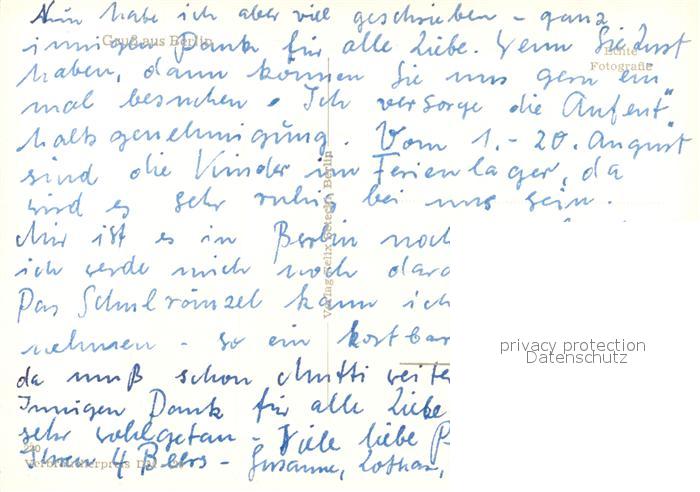 Nun habe ich aber viel geschrieben - ganz
innigen Dank für alle Liebe. Wenn Sie Lust
haben, dann können Sie uns gern ein
mal besuchen. Ich versorge die Aufent"
haltsgenehmigung. Vom 1. - 20. August"
sind die Kinder im Ferienlager, da
wird es sehr ruhig bei uns sein.
Mir ist es in Berlin noch
ich werde mich noch dara
Das Schulränzel kann ich
nehmen - so ein kostbar
da muß schon Mutti weite
Innigen Dank für alle Liebe
sehr wohlgetan - Viele liebe
Ihren 4 Beers - Susanne, Lothar,
Gruß aus Berlin
Echte
Fotografie
Verlag Felix Setecki Berlin
Verbraucherpreis
privacy protection
Datenschutz